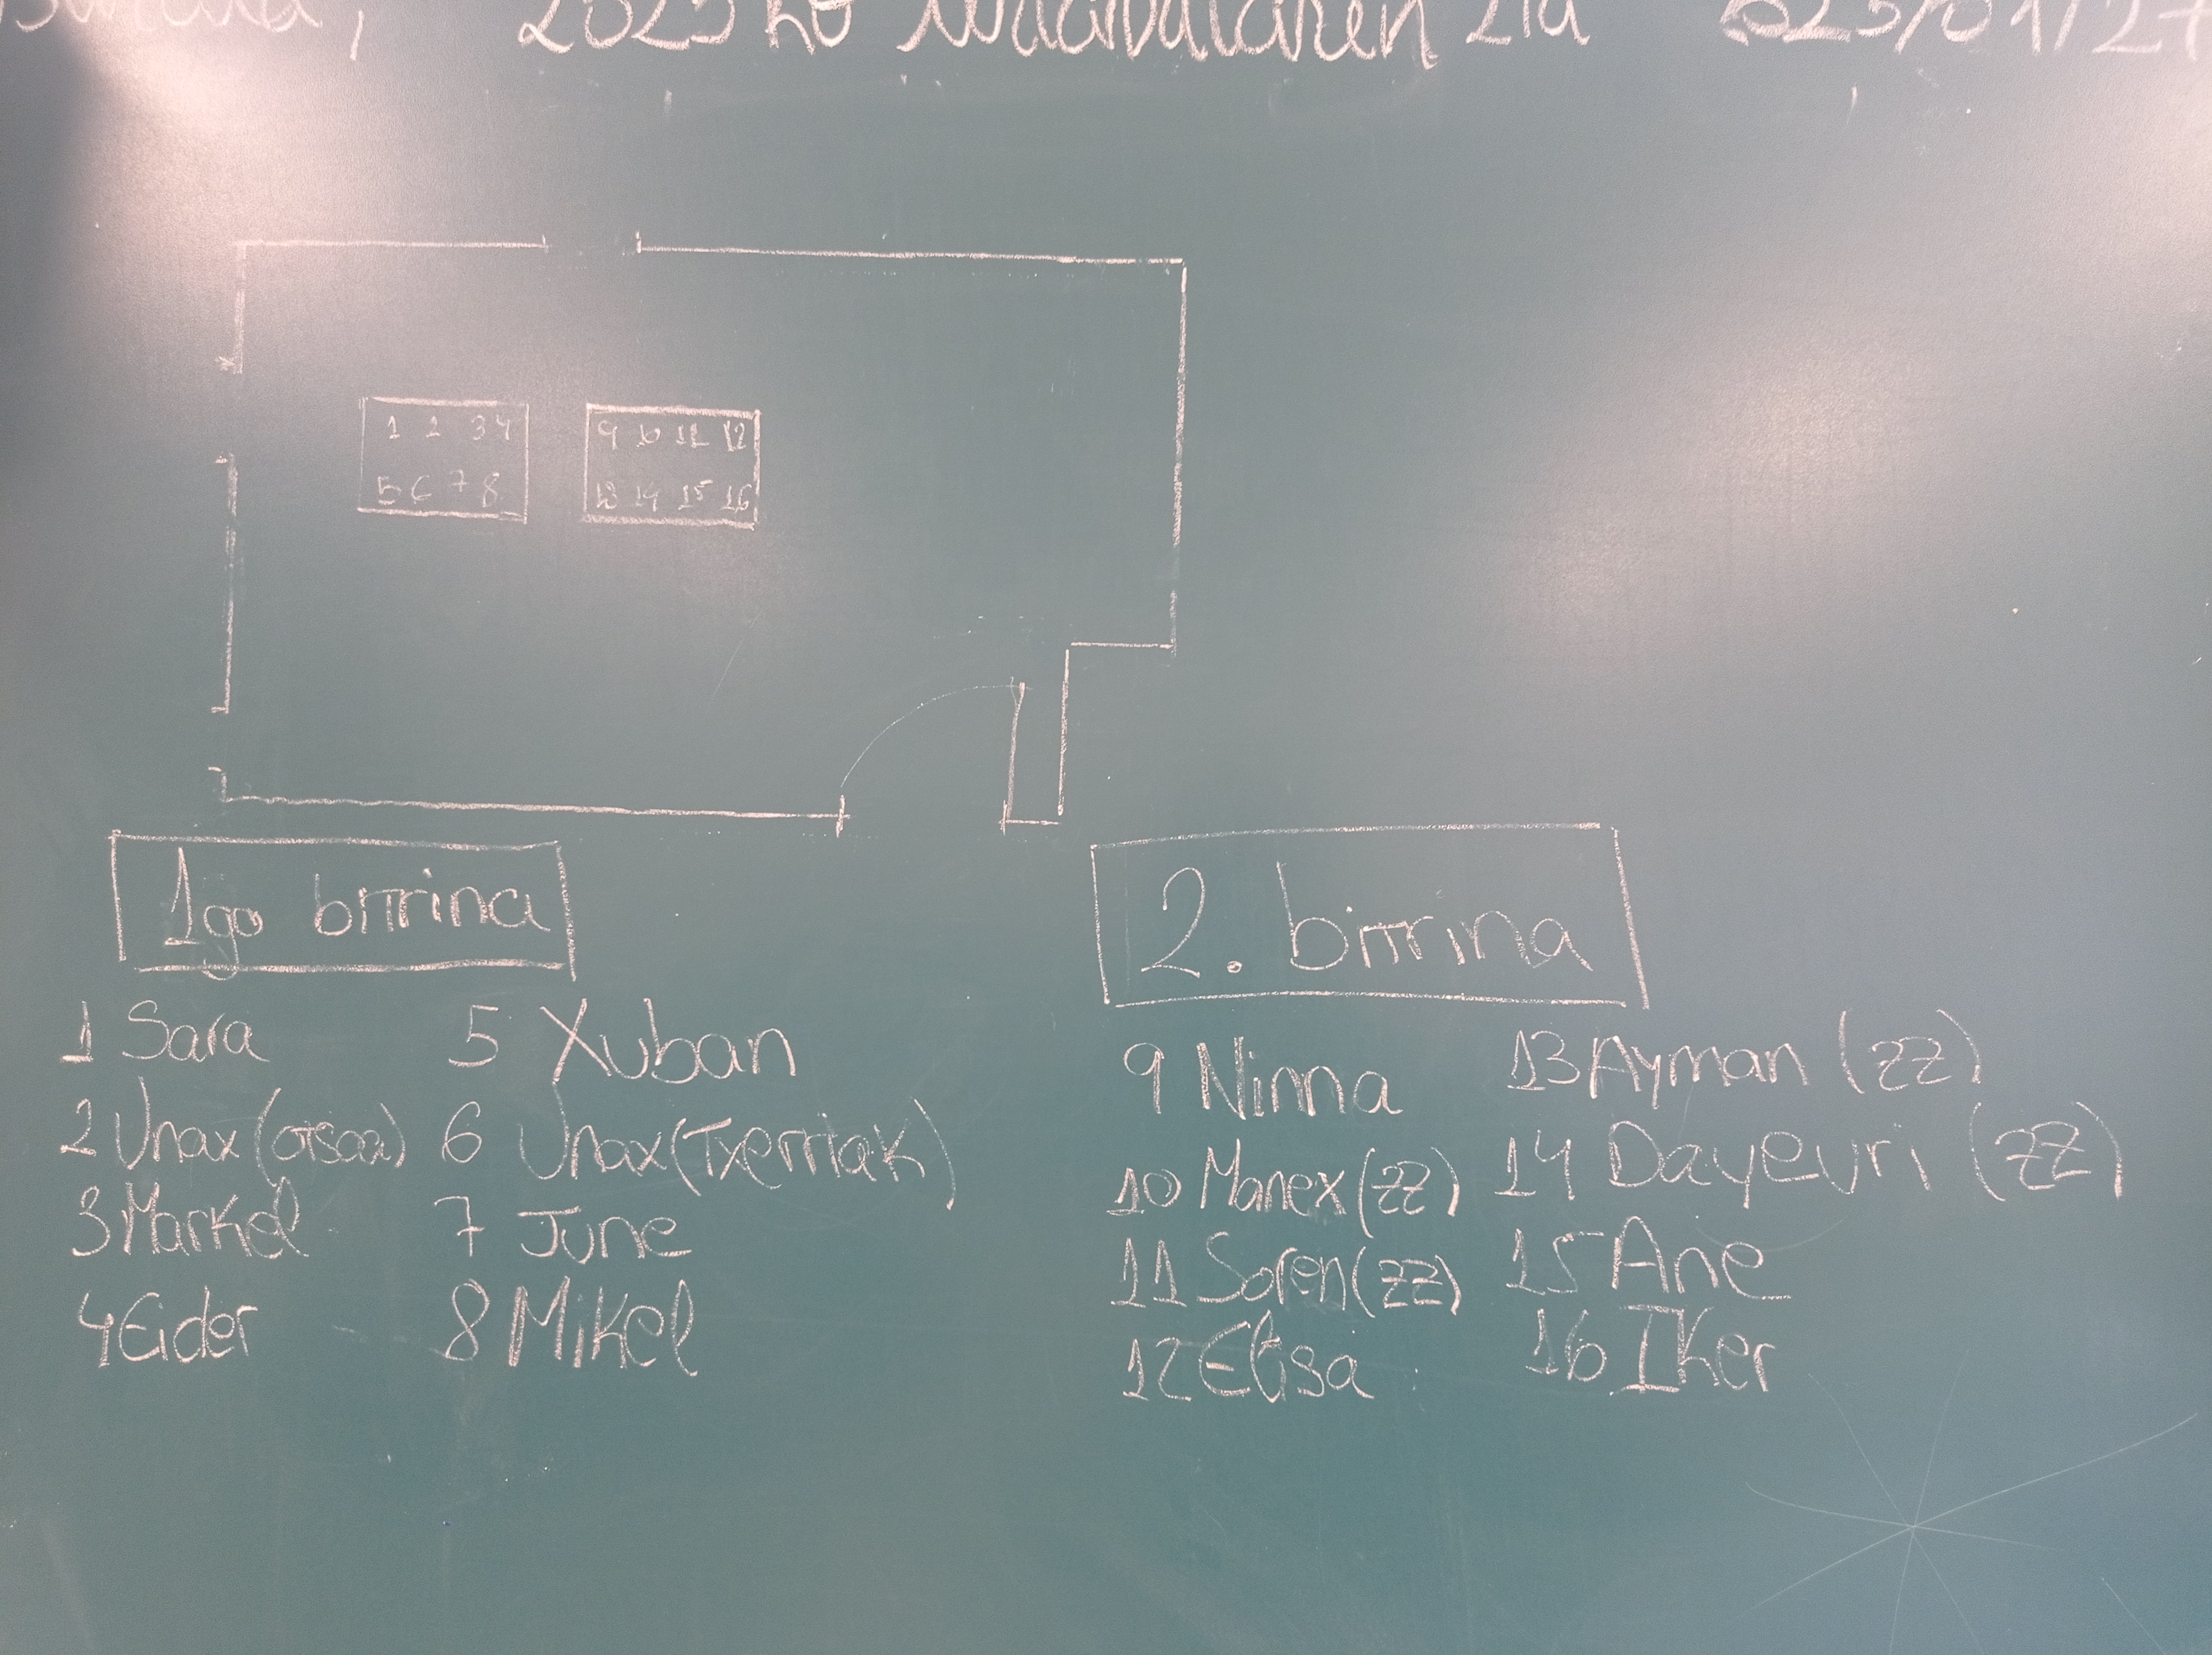 2025ko 21a 2025/01/27
1 2 3 4
5 6 7 8
9 10 11 12
13 14 15 16
1go bitrina
1 Sara
2 Unax (otsoa)
3 Markel
4 Eider
5 Xuban
6 Unax (Txerriak)
7 June
8 Mikel
2. bitrina
9 Ninna
10 Manex (zz)
11 Soren (zz)
12 Elisa
13 Ayman (zz)
14 Dayeuri (zz)
15 Ane
16 Iker